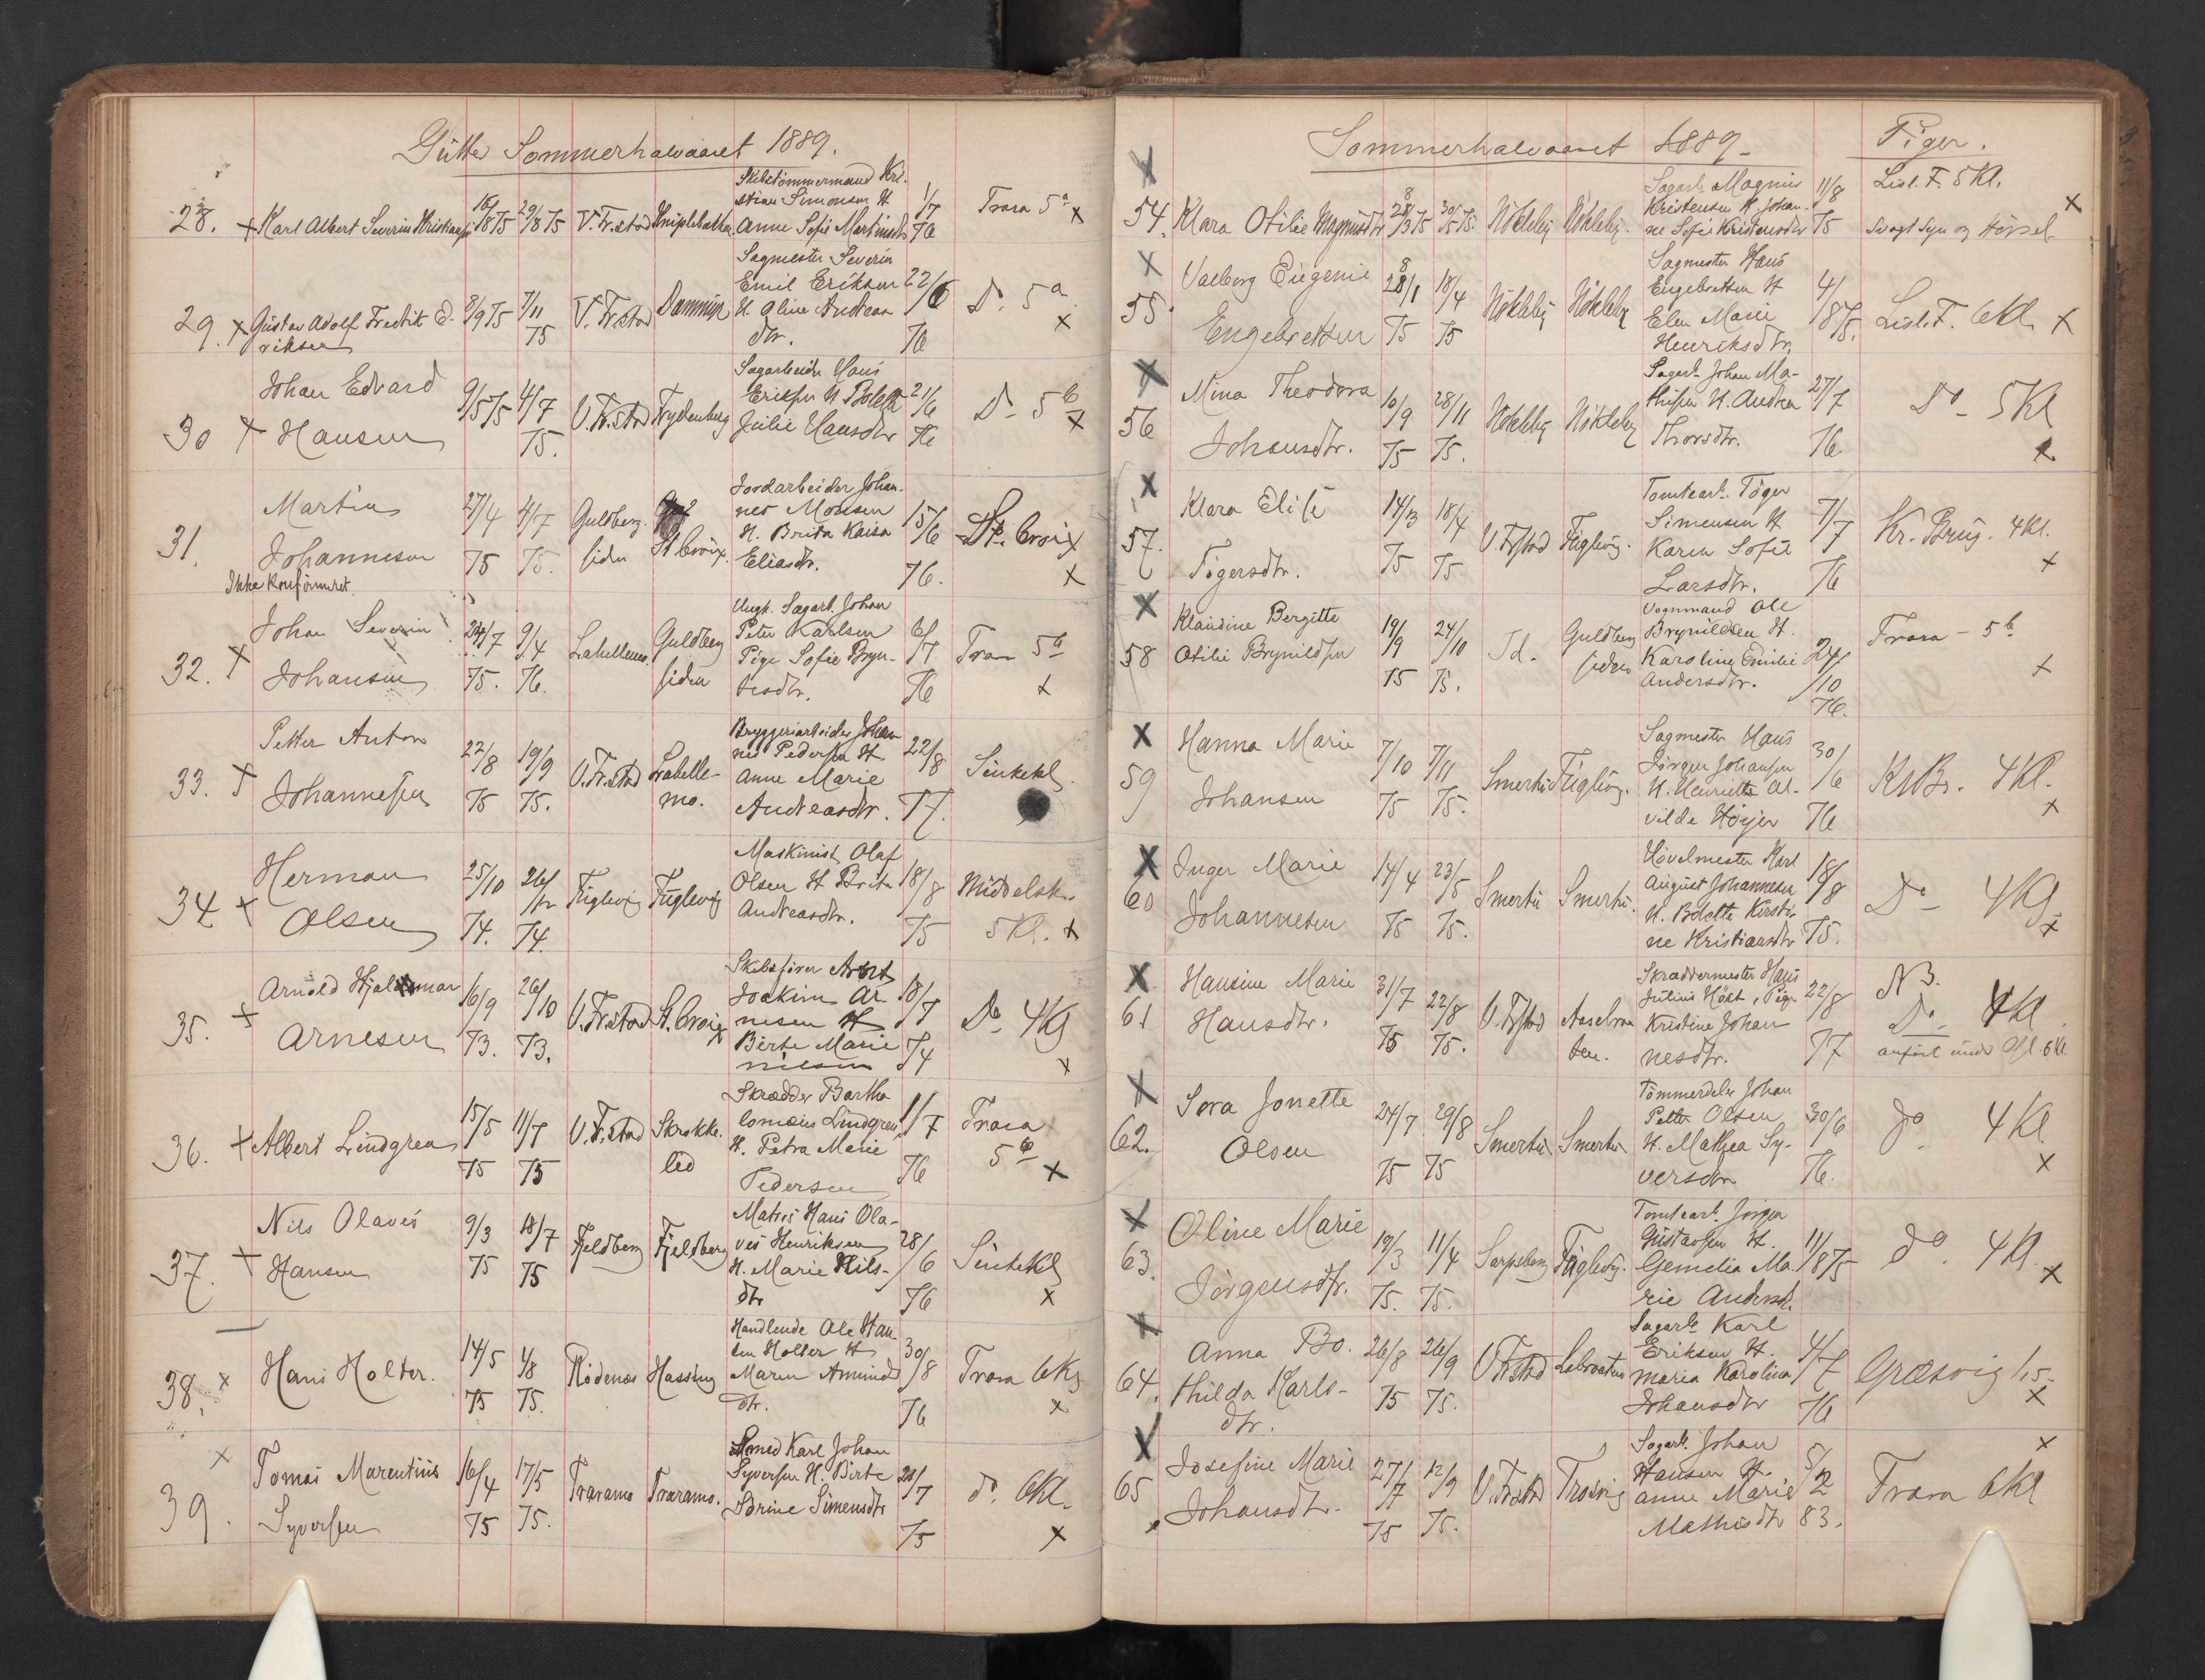 Gutter Sommerhalvaaret 1889.
28. x Karl Albert Severin Kristiansen 16/8 75 29/8 75 V. Fr.stad Kniplebakken Skibstømmermand Kri-
stian Simonsen H
Anne Sofie Martinsdtr 1/7 76 Trara 5a x
29. x Gustav Adolf Fredrik E-
riksen 8/9 75 7/11 75 V. Fr.stad Dammin Sagmester Severin
Emil Eriksen
H. Oline Andrea
dtr. 22/6 76 Do 5a x
30 x Johan Edvard
Hansen 9/5 75 4/7 75. V. Fr.stad Frydenberg Sagarbeider Hans
Eriksen H Bolette
Julie Hansdtr 21/6 76 Do 5b x
31. Martin
Johannesen
Ikke konfirmeret. 27/4 75 4/7 75. Guldberg-
siden St. Croix Jordarbeider Johan-
nes Monsen
H. Brita Kaisa
Eliasdtr. 15/6 76. St. Croix x
32. x Johan Severin
Johansen 24/7 75. 9/4 76. Labellemo Guldberg
siden Ungk. Sagarb. Johan
Peter Karlsen
Pige Sofie Bryn-
tesdtr. 6/7 76 Trara 5b x
33. x Petter Anton
Johannesen 22/8 75 19/9 75. V. Fr.stad Labelle-
mo. Bryggeriarbeider Johan
nes Pedersen H.
Anne Marie
Andreasdtr. 22/8 77. Sinkekl.
34 x Herman
Olsen 25/10 74. 26/12 74. Fuglevig Fuglevig Maskinist Olaf
Olsen H Brita
Andreasdtr. 18/8 75 Middelsk.
5 Kl. x
35. x Arnold Hjalmar
Arnesen 16/9 73. 26/10 73. V. Fr.stad St. Croix Skibsfører Arnt
Joakim Ar
nesen H
Birte Marie
Nilsen 18/7 74 Do 4Kl x
36. x Albert Lindgren 15/5 75 11/7 75 V. Fr.stad Skrokke-
lid Skrædder Bartho
lomæus Lindgren,
H. Petra Marie
Pedersen 1/7 76 Trara
5b x
37. x Nils Olaves
Hansen 9/3 75 18/7 75 Fjeldberg Fjeldberg Matros Hans Ola-
ves Henriksen
H. Marie Nils-
dtr 28/6 76 Sinkekl x
38. x Hans Holter. 14/5 75 1/8 75. Rødenæs Hassing Handlende Ole Han-
sen Holter H
Maren Amunds
dtr. 30/8 76 Trara 6Kl x
39. x Tomas Marentius
Syversen 16/4 75 17/5 75. Traramo Traramo. Smed Karl Johan
Syversen H. Birte
Sørine Simensdtr 20/7 75 do. 6Kl. x
Sommerhalvaaret 1889 - Piger.
54. x Klara Otilie Magnusdtr 28/3 75 30/5 75. Nökleby Nökleby. Sagarb. Magnus
Kristensen H. Johan-
ne Sofie Kristensdtr 11/8 75 Lisl. F. 5Kl.
Svagt Syn og Hörsel x
55. x Valborg Eugenie
Engebretsen 28/1 75 18/4 75 Nökleby Nökleby Sagmester Hans
Engebretsen H
Elen Marie
Henriksdtr 4/8 75. Lisl. F. 6Kl x
56 x Mina Theodora
Johansdtr. 10/9 75 28/11 75. Nökleby Nökleby Sagarb. Johan Ma-
thisen H. Andrea
Thorsdtr. 27/7 76 Do - 5 Kl x
57. x Klara Elise
Tögersdtr. 14/3 75 18/4 75. V. Fr.stad Fuglevig. Tomtearb. Töger
Simensen H
Karen Sofie
Larsdtr. 7/7 76 Kr. Brug. 4Kl. x
58 x Klaudine Bergitte
Otilie Brynildsen 19/9 75 24/10 75. Id. Guldberg
siden Vognmand Ole
Brynildsen H.
Karoline Emilie
Andersdtr. 24/10 76. Trara - 5b x
59 x Hanna Marie
Johansen 7/10 75 7/11 75. Smertu Fuglevig. Sagmester Hans
Jörgen Johansen
H. Henriette Al-
vilde Höyer 30/6 76 Kr Br. 4Kl. x
60 x Inger Marie
Johannesen 14/4 75 23/5 75. Smertu Smertu. Hövelmester Karl
August Johannesen
H. Bolette Kirsti-
ne Kristiansdtr 18/8 75. Do - 4Kl x
61 x Hansine Marie
Hansdtr. 31/7 75 22/8 75. V. Fr.stad Aaselvaa
ten. Skræddermester Hans
Julius Höst, Pige
Kristine Johan
nesdtr. 22/8 77 NB.
Do 4Kl.
anfört under Gl. 6Kl
62. x Sora Jonette
Olsen 24/7 75 29/8 75 Smertu Smertu Tömmerdeler Johan
Petter Olsen
H. Mathea Sy-
versdtr. 30/6 76. do. 4 Kl x
63. x Oline Marie
Jörgensdtr. 19/3 75. 11/4 75. Sarpsborg Fuglevig. Tomtearb. Jörgen
Gustavsen H.
Gemelia Ma-
rie Andersd. 11/8 75 do. 4Kl. x
64. x Anna Bo.
thilda Karls-
dtr. 26/8 75 26/9 75. V. Fr.stad Lebraaten Sagarb. Karl
Eriksen H.
Maria Karolina
Johansdtr 4/7 76 Græsvig 1,5- x
65 x Josefine Marie
Johansdtr. 27/7 75 12/9 75. V. Fr.stad Trosvig Sagarb. Johan
Hansen H.
Anne Marie
Mathisdtr 5/2 83. Trara 6Kl x